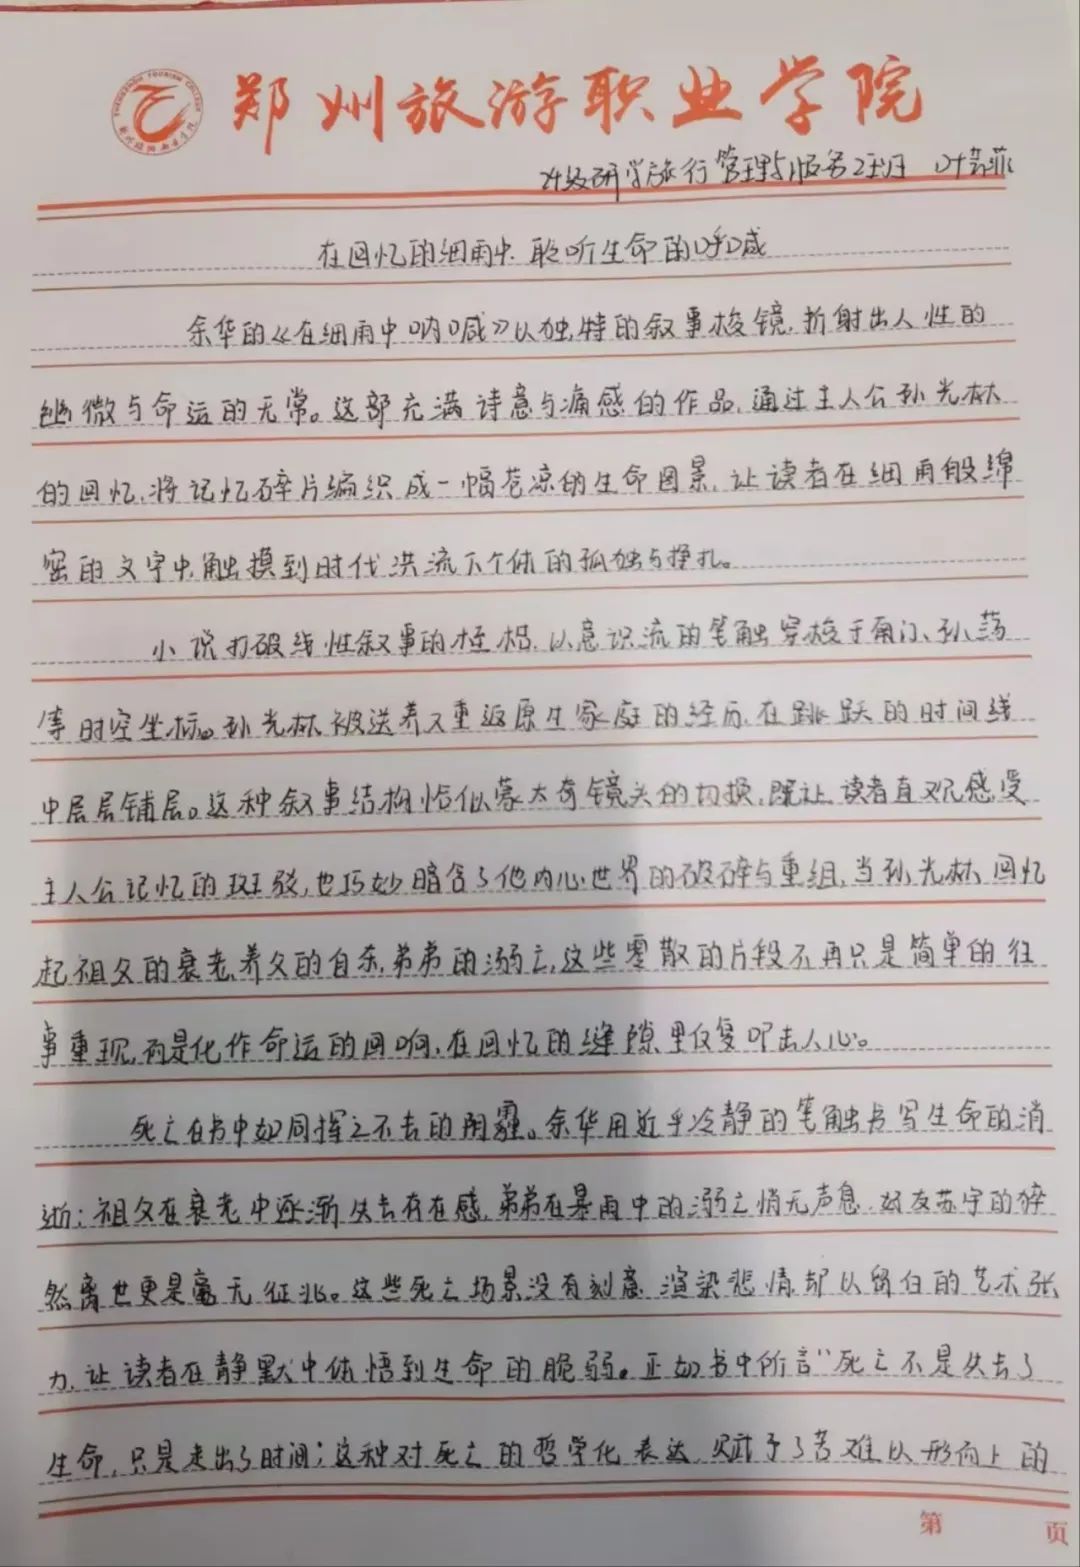 郑州旅游职业学院
ZHENGZHOU TOURISM COLLEGE
郑州旅游职业学院
24级研学旅行管理与服务2班 叶芸菲
在回忆的细雨中,聆听生命的呼喊
余华的《在细雨中呐喊》以独特的叙事棱镜,折射出人性的
幽微与命运的无常。这部充满诗意与痛感的作品,通过主人公孙光林
的回忆,将记忆碎片编织成一幅苍凉的生命图景,让读者在细雨般绵
密的文字中,触摸到时代洪流下个体的孤独与挣扎。
小说打破线性叙事的桎梏,以意识流的笔触穿梭于南门、孙荡
等时空坐标。孙光林被送养又重返原生家庭的经历,在跳跃的时间线
中层层铺层。这种叙事结构恰似蒙太奇镜头的切换,既让读者直观感受
主人公记忆的斑驳,也巧妙暗含了他内心世界的破碎与重组,当孙光林回忆
起祖父的衰老,养父的自杀,弟弟的溺亡,这些零散的片段不再只是简单的往
事重现,而是化作命运的回响,在回忆的缝隙里反复叩击人心。
死亡在书中如同挥之不去的阴霾。余华用近乎冷静的笔触书写生命的消
逝:祖父在衰老中逐渐失去存在感,弟弟在暴雨中的溺亡悄无声息,好友苏宇的猝
然离世更是毫无征兆。这些死亡场景没有刻意渲染悲情,却以留白的艺术张
力,让读者在静默中体悟到生命的脆弱。正如书中所言"死亡不是失去了
生命,只是走出了时间;这种对死亡的哲学化表达,赋予了苦难以形而上的
第 页